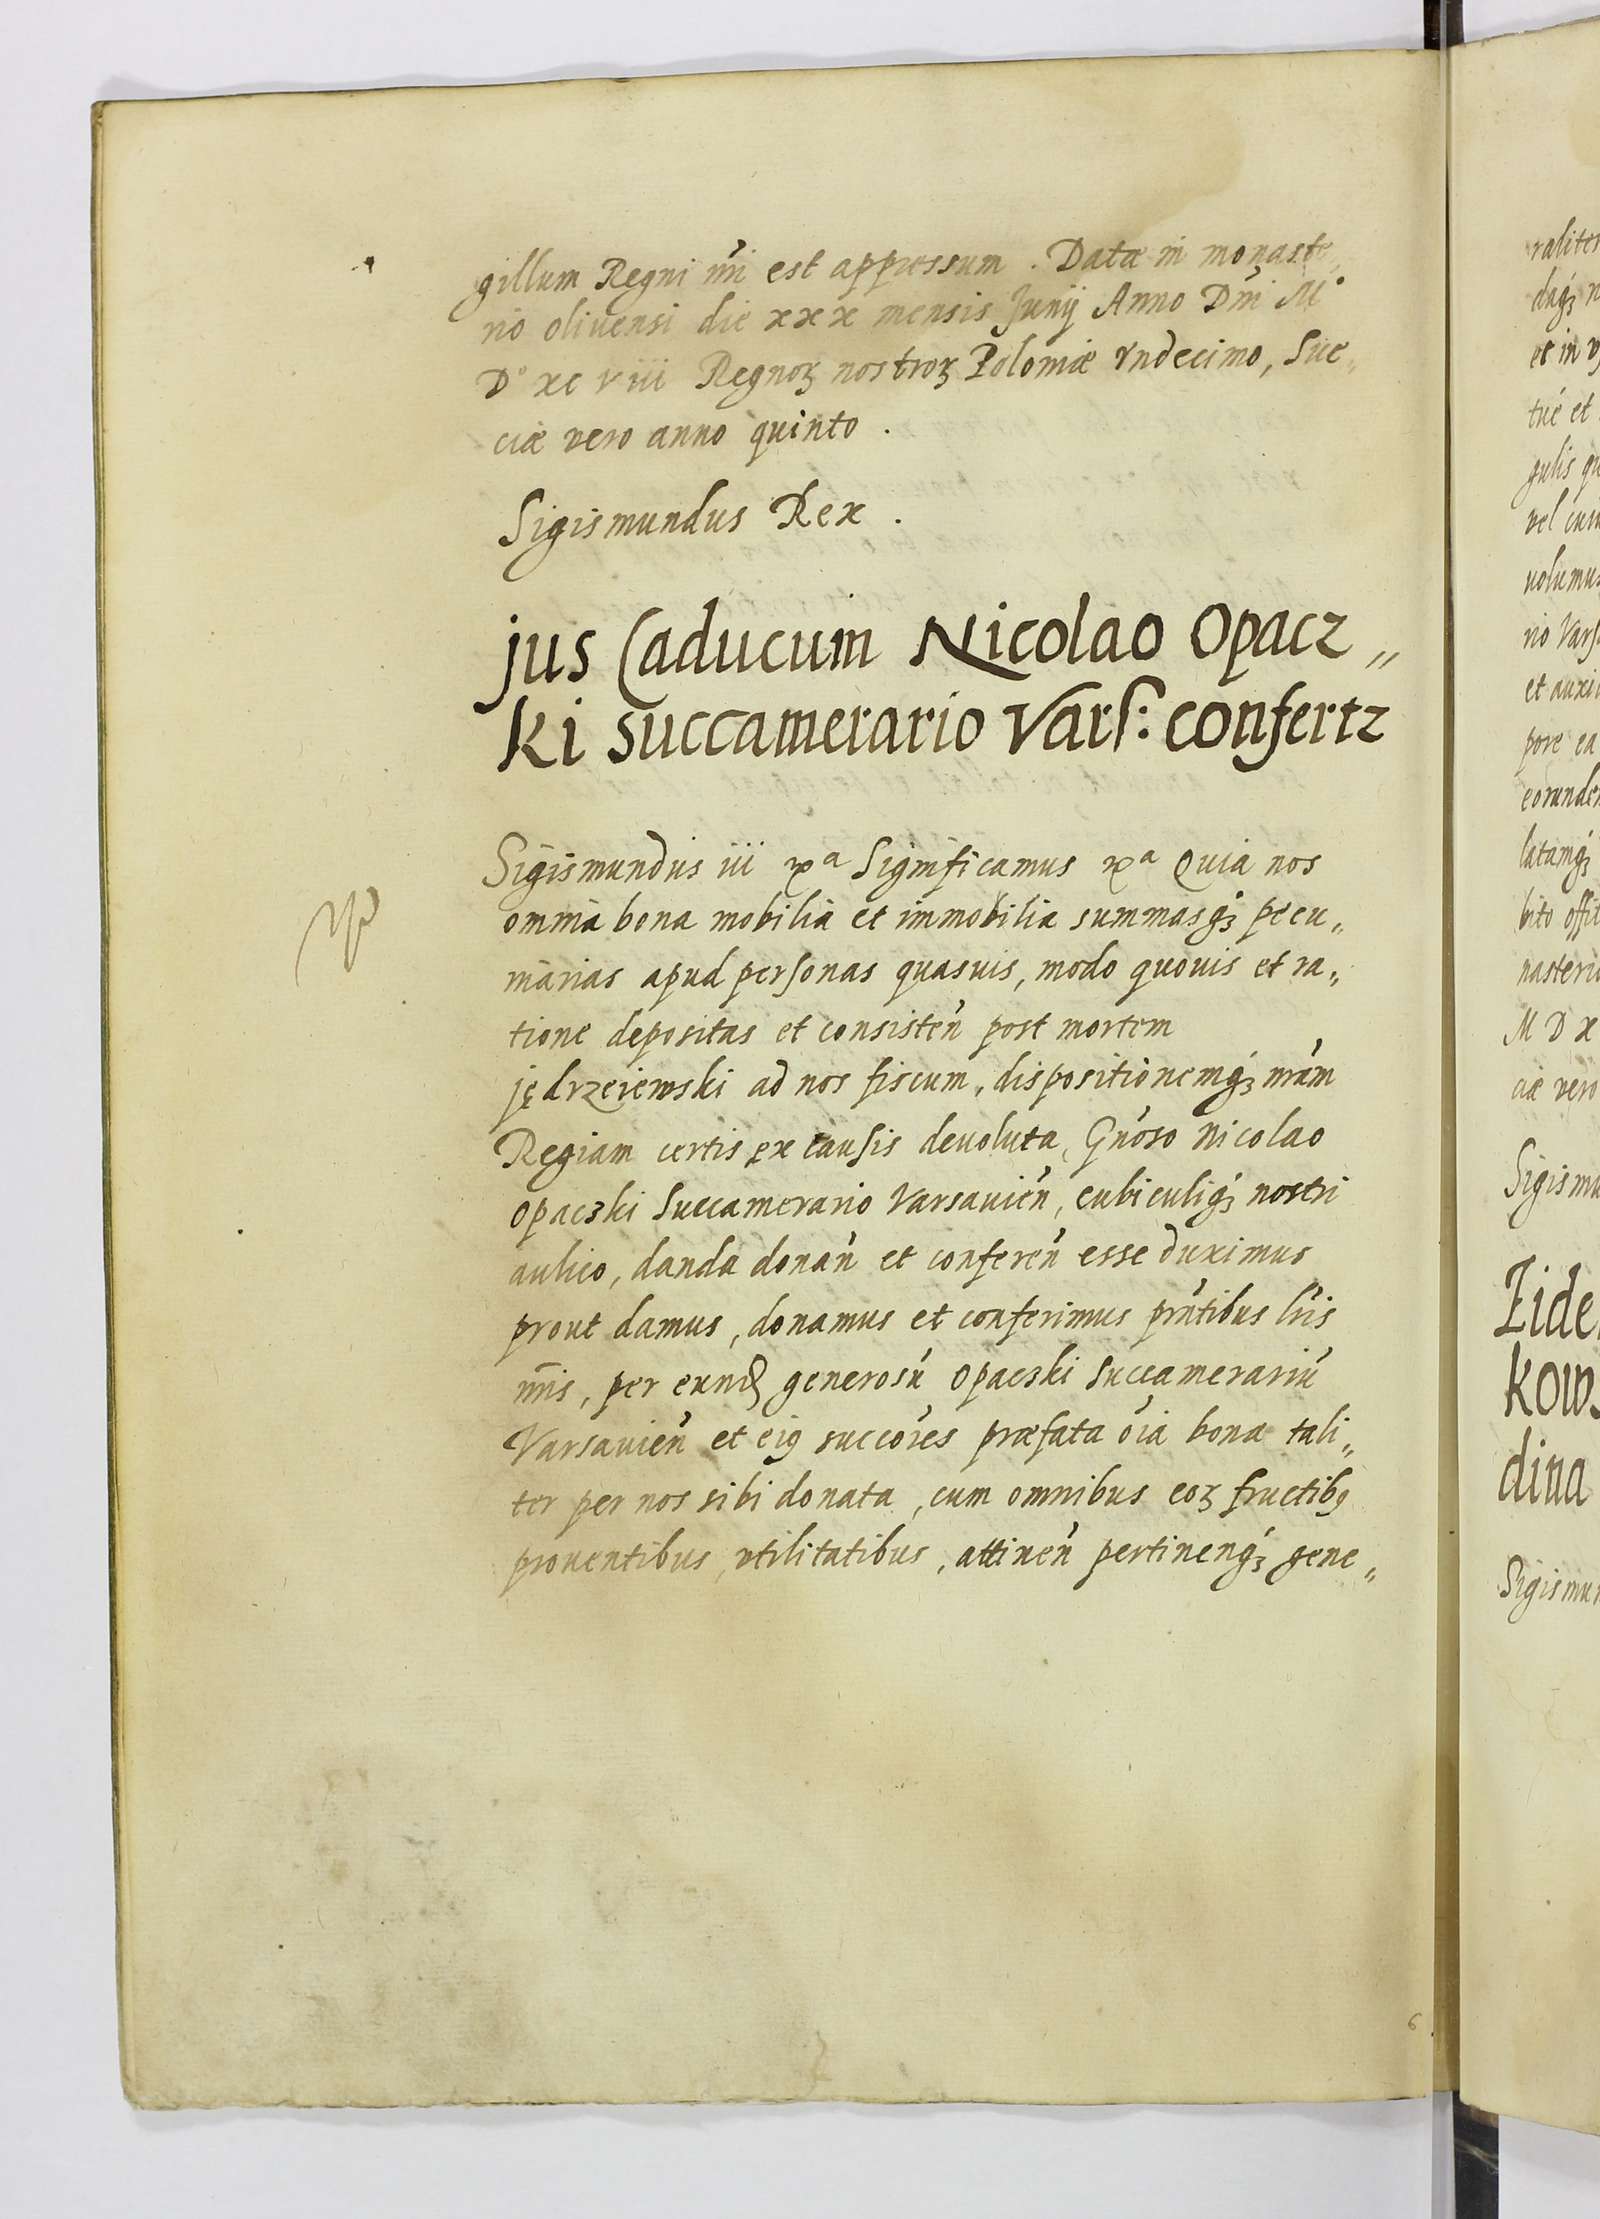 gillum Regni nr̃i est appressum. Datæ in monaste„
rio oliuensi die xxx mensis Junij Anno Dñi M°
D° xc viii Regnoꝝ nostroꝝ Poloniæ vndecimo, Sue„
ciæ vero anno quinto.
Sigismundus Rex.
jus Caducum Nicolao Opacz„
ki succamerario Vars: confertz
Sigismundus iii Significamus Quia nos
omnia bona mobilia et immobilia summasqꝫ pecu„
niarias apud personas quasuis, modo quouis et ra„
tione depositas et consisteñ post mortem
jędrzeiewski ad nos fiscum, dispositionemqꝫ nr̃am
Regiam certis ex causis deuoluta, Gñoso Nicolao
Opaczki Succamerario Varsauieñ, cubiculiqꝫ nostri
aulico, danda donañ et confereñ esse duximus
prout damus, donamus et conferimus pr̃ntibus lr̃is
nr̃is, per eund generosũ Opaczki Succamerariũ
Varsauieñ et eiꝰ succores præfata oĩa bona tali„
ter per nos sibi donata, cum omnibus eoꝝ fructibꝰ
prouentibus, vtilitatibus, attineñ pertinenqꝫ gene„
6
raliter
daqꝫ
et in
tue et
gulis
vel
uolumus
rio Vars
et auxi
pore ea
eorunde
latamqꝫ
bito offi
nasteri
M D x
ciæ vero
Sigismu
kows
dina
Sigismun